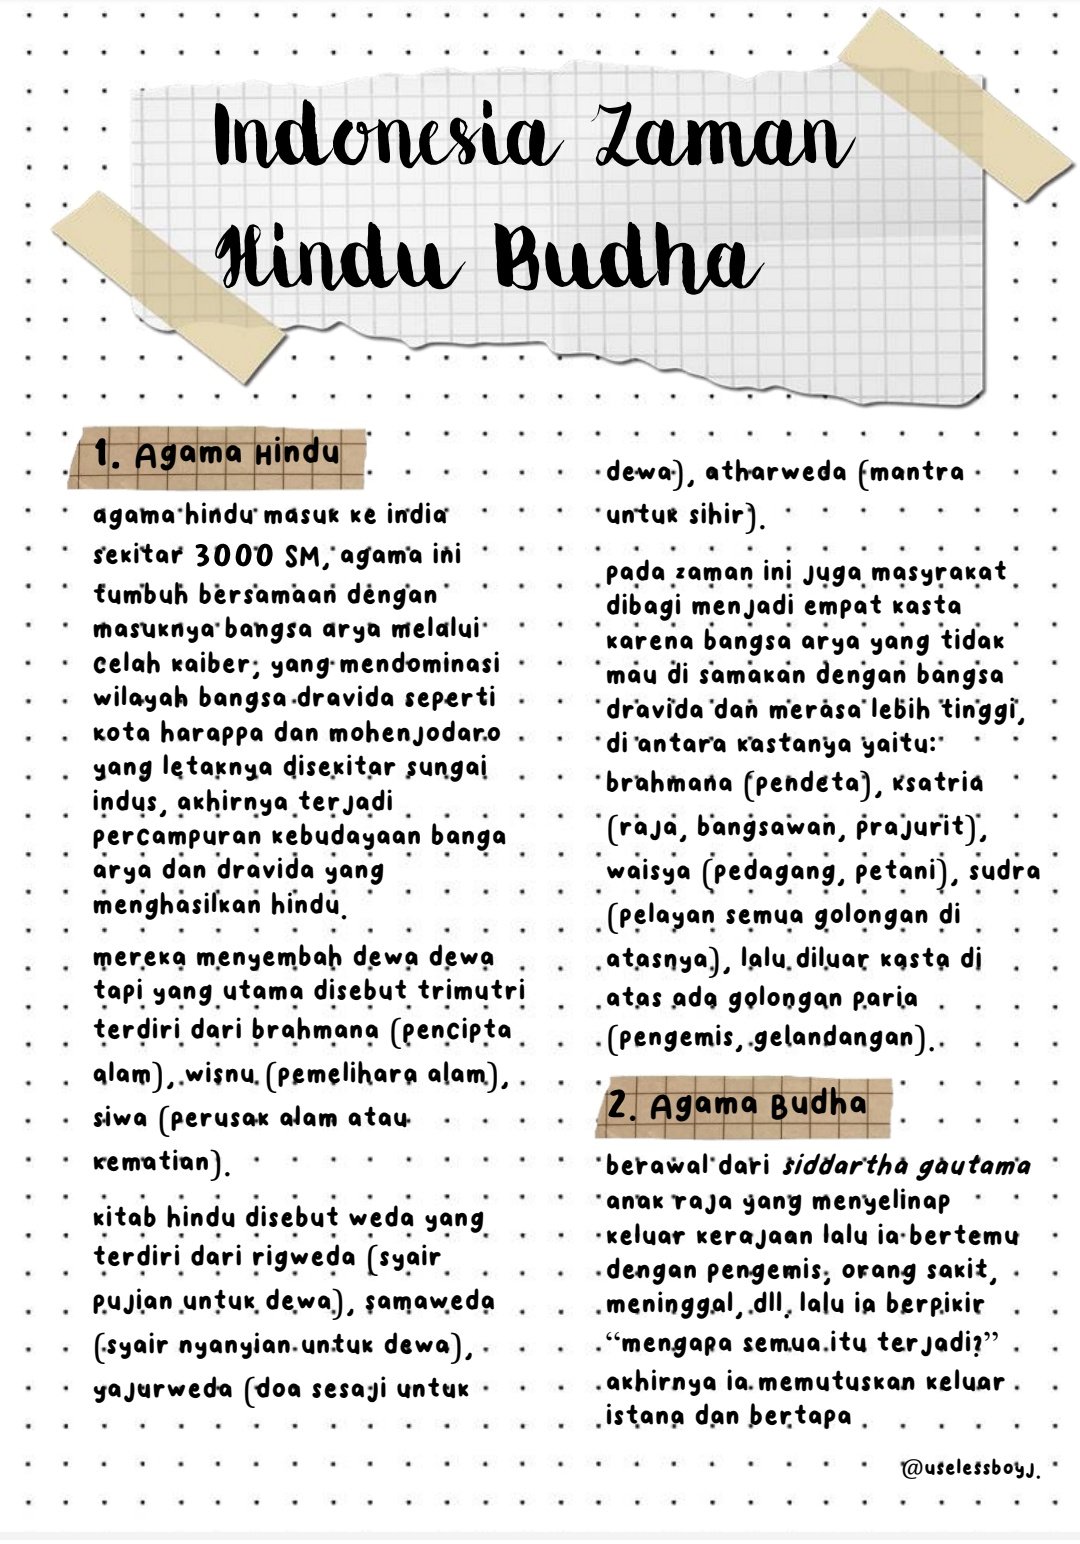 Indonesia Zaman
Hindu Budha
1. Agama Hindu
agama hindu masuk ke india
sekitar 3000 SM, agama ini
tumbuh bersamaan dengan
masuknya bangsa arya melalui
celah kaiber, yang mendominasi
wilayah bangsa dravida seperti
kota harappa dan mohenjodaro
yang letaknya disekitar sungai
indus, akhirnya terjadi
percampuran kebudayaan banga
arya dan dravida yang
menghasilkan hindu.
mereka menyembah dewa dewa
tapi yang utama disebut trimutri
terdiri dari brahmana (pencipta
alam), wisnu (pemelihara alam),
siwa (perusak alam atau
kematian).
kitab hindu disebut weda yang
terdiri dari rigweda (syair
pujian untuk dewa), samaweda
(syair nyanyian untuk dewa),
yajurweda (doa sesaji untuk
dewa), atharweda (mantra
untuk sihir).
pada zaman ini juga masyrakat
dibagi menjadi empat kasta
karena bangsa arya yang tidak
mau di samakan dengan bangsa
dravida dan merasa lebih tinggi,
di antara kastanya yaitu:
brahmana (pendeta), ksatria
(raja, bangsawan, prajurit),
waisya (pedagang, petani), sudra
(pelayan semua golongan di
atasnya), lalu diluar kasta di
atas ada golongan paria
(pengemis, gelandangan).
2. Agama Budha
berawal dari siddartha gautama
anak raja yang menyelinap
keluar kerajaan lalu ia bertemu
dengan pengemis, orang sakit,
meninggal, dll. lalu ia berpikir
“mengapa semua itu terjadi?”
akhirnya ia memutuskan keluar
istana dan bertapa
@uselessboyj.